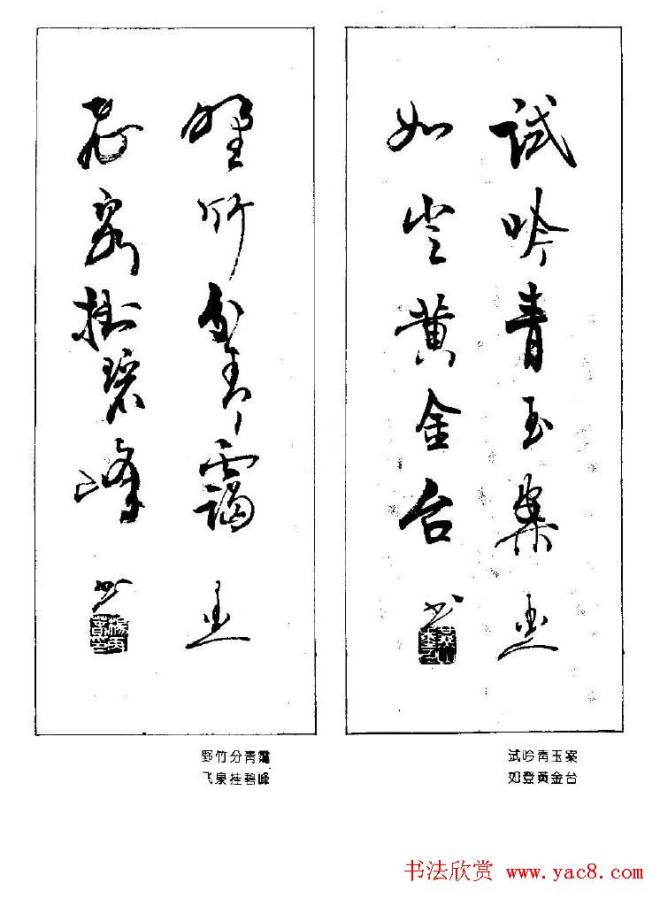 試吟青玉案
如登黄金台
书
野竹分青靄
飛泉掛碧峰
书
试吟青玉案
如登黄金台
野竹分青霭
飞泉挂碧峰
书法欣赏 www.yac8.com